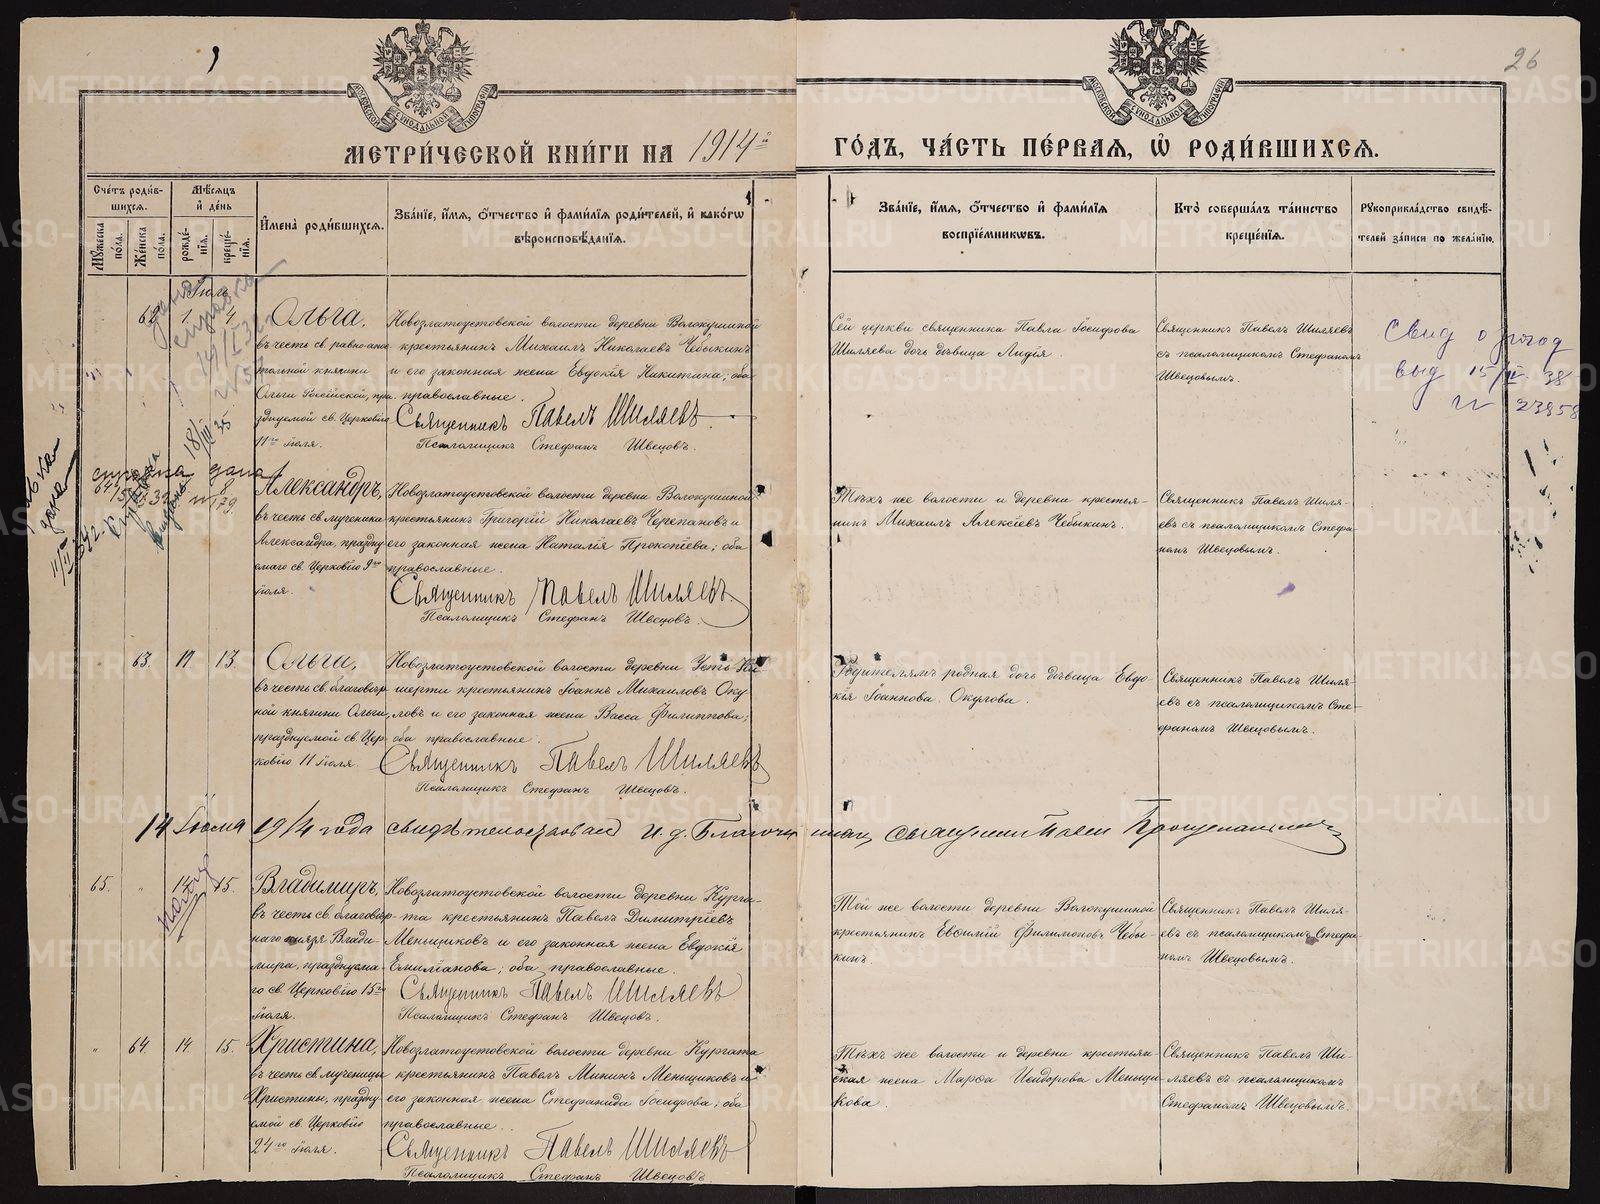 26
МЕТРИ́ЧЕСКОЙ КНИ́ГИ НА 1914й ГО́ДЪ, ЧА́СТЬ ПЕ́РВАЯ, Ѡ҆ РОДИ́ВШИХСЯ.
Сче́тъ роди́в-
шихся.
Мѣ́сяцъ
и҆ де́нь
Мꙋ́жеска по́ла.
Же́нска по́ла.
рожде́-
нїя.
креще́-
нїя.
И҆мена̀ роди́вшихся.
Зва́нїе, и҆́мя, ѻ҆́тчество и҆ фами́лїя роди́телей, и҆ како́гѡ
вѣроисповѣ́данїя.
Зва́нїе, и҆́мя, ѻ҆́тчество и҆ фами́лїя
воспрїе́мникѡвъ.
Кто̀ соверша́лъ та́инство
креще́нїя.
Рꙋкоприкла́дство свидѣ́-
телей за́писи по жела́нїю.
Іюль
62 1. 4
Ольга,
въ честь св. равно-апос
тольной княгини
Ольги Россійской, пра
зднуемой св. Церковію
11го іюля.
Новозлатоустовской волости деревни Волокушиной
крестьянинъ Михаилъ Николаевъ Чебыкинъ
и его законная жена Евдокія Никитина; оба
православные.
Священникъ Павелъ Шиляевъ.
Псаломщикъ Стефанъ Швецовъ.
Сей церкви священника Павла Іосифова
Шиляева дочь дѣвица Лидія.
Священникъ Павелъ Шиляевъ
съ псаломщикомъ Стефаномъ
Швецовымъ.
Свид о рожд
выд 15/IV 38
N 23958
справка дана
64 8
Александръ,
въ честь св. мученика
Александра, праздну
емаго св. Церковію 9го
іюля.
Новозлатоустовской волости деревни Волокушиной
крестьянинъ Григорій Николаевъ Черепановъ и
его законная жена Наталія Прокопіева; оба
православные.
Священникъ Павелъ Шиляевъ.
Псаломщикъ Стефанъ Швецовъ.
Тѣхъ же волости и деревни крестья-
нинъ Михаилъ Алексіевъ Чебыкинъ.
Священникъ Павелъ Шиля-
евъ съ псаломщикомъ Стефа-
номъ Швецовымъ.
63. 11 13
Ольга,
въ честь св. благовѣр
ной княгини Ольги,
празднуемой св. Цер
ковію 11 іюля.
Новозлатоустовской волости деревни Усть-Ки-
шерти крестьянинъ Іоаннъ Михаиловъ Оку
ловъ и его законная жена Васса Филиппова;
оба православные.
Священникъ Павелъ Шиляевъ
Псаломщикъ Стефанъ Швецовъ.
Родителямъ родная дочь дѣвица Евдо-
кія Іоаннова Окулова.
Священникъ Павелъ Шиля-
евъ съ псаломщикомъ Сте-
фаномъ Швецовымъ.
14 1914 года и. д. Благочи
65. " 14. 15.
Владимиръ,
въ честь св. благовѣр
наго князя Влади-
мира, празднуема-
го св. Церковію 15го
іюля.
Новозлатоустовской волости деревни Курга-
та крестьянинъ Павелъ Димитріевъ
Меньщиковъ и его законная жена Евдокія
Емиліанова; оба православные.
Священникъ Павелъ Шиляевъ
Псаломщикъ Стефанъ Швецовъ.
Той же волости деревни Волокушиной
крестьянинъ Евѳимій Филимоновъ Чебы-
кинъ.
Священникъ Павелъ Шиля-
евъ съ псаломщикомъ Стефа-
номъ Швецовымъ.
" 64. 14. 15.
Христина,
въ честь св. мученицы
Христины, праздну
емой св. Церковію
24го іюля.
Новозлатоустовской волости деревни Кургата
крестьянинъ Павелъ Мининъ Меньщиковъ и
его законная жена Стефанида Іосифова; оба
православные.
Священникъ Павелъ Шиляевъ
Псаломщикъ Стефанъ Швецовъ.
Тѣхъ же волости и деревни крестьян-
ская жена Марѳа Исидорова Меньщи-
кова.
Священникъ Павелъ Ши-
ляевъ съ псаломщикомъ
Стефаномъ Швецовымъ.
METRIKI.GASO-URAL.RU